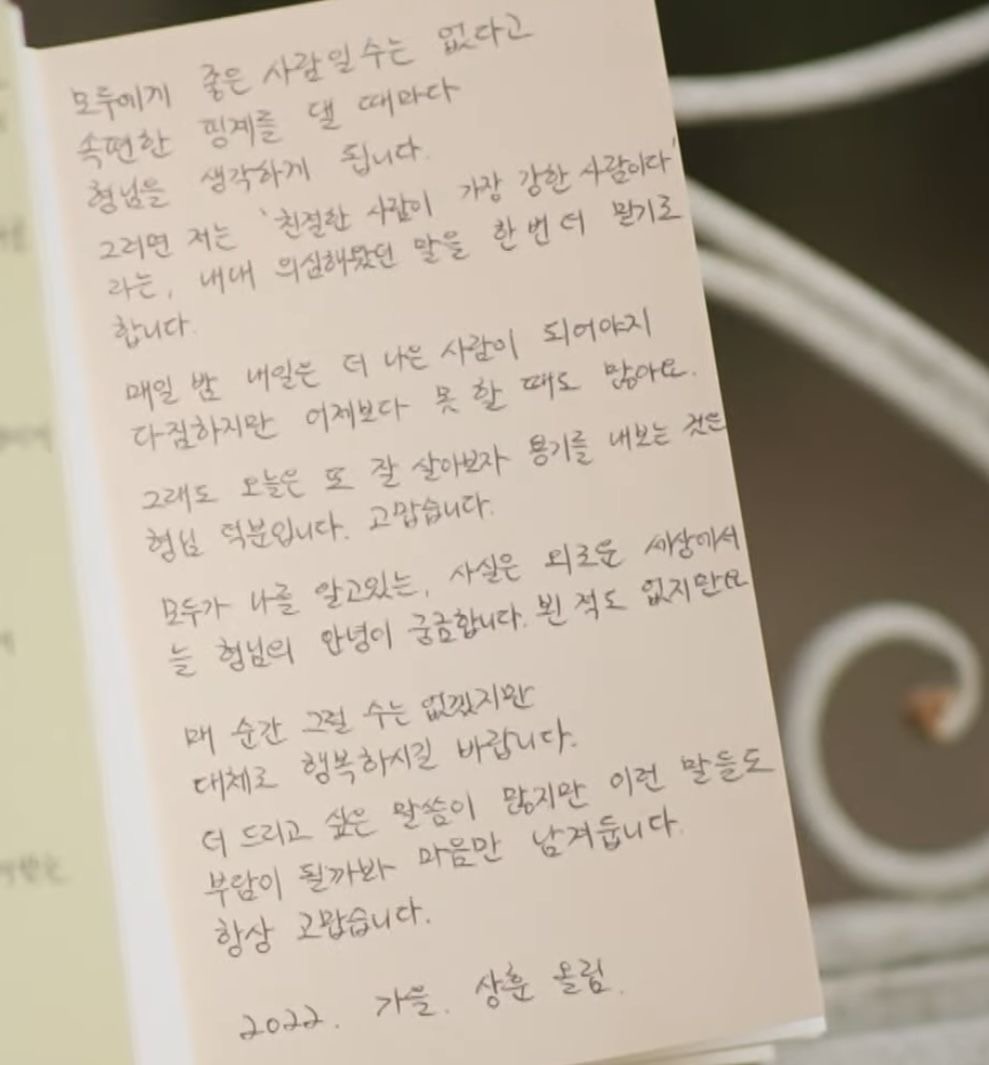 모두에게 좋은 사람일 수는 없다고
속편한 핑계를 댈 때마다
형님을 생각하게 됩니다.
그러면 저는 '친절한 사람이 가장 강한 사람이다'
라는, 내내 의심해왔던 말을 한번 더 믿기로
합니다.
매일 밤 내일은 더 나은 사람이 되어야지
다짐하지만 어제보다 못 할 때도 많아요.
그래도 오늘은 또 잘 살아보자 용기를 내보는 것은
형님 덕분입니다. 고맙습니다.
모두가 나를 알고있는, 사실은 외로운 세상에서
늘 형님의 안녕이 궁금합니다. 뵌 적도 없지만요
매 순간 그럴 수는 없겠지만
대체로 행복하시길 바랍니다.
더 드리고 싶은 말씀이 많지만 이런 말들도
부담이 될까봐 마음만 남겨둡니다.
항상 고맙습니다.
2022. 가을. 상훈 올림.